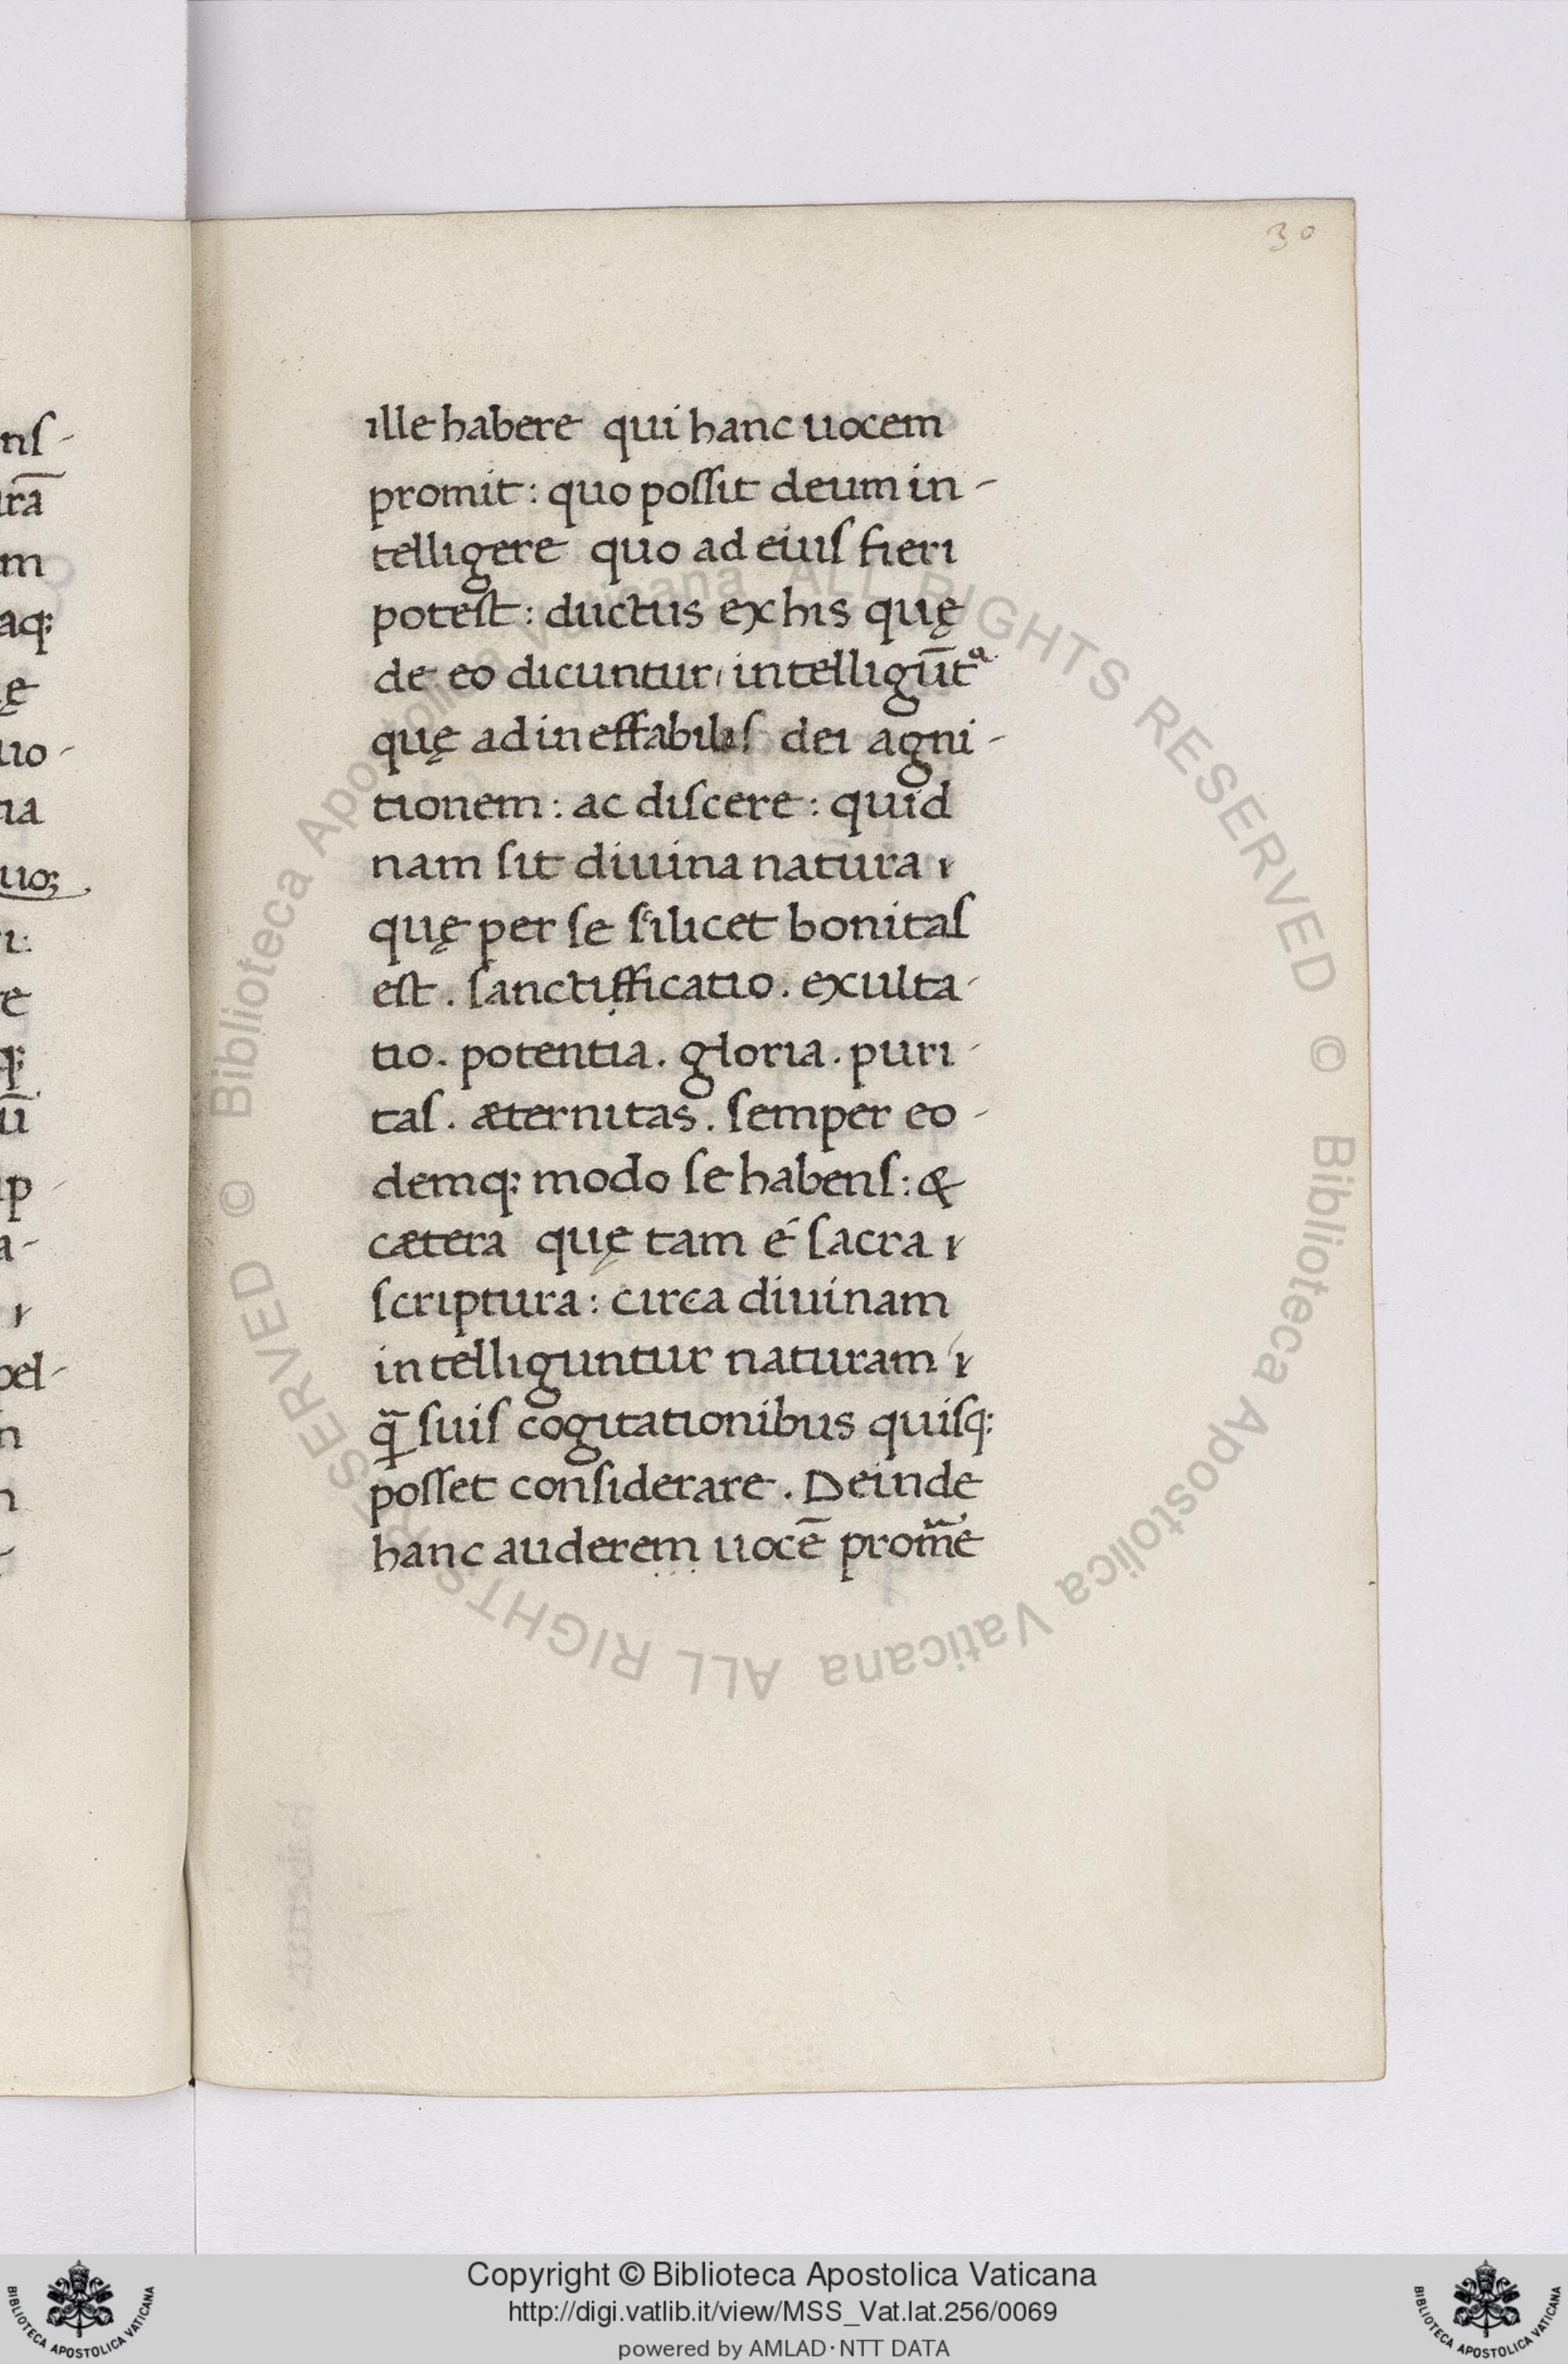 30
ille habere qui hanc uocem
promit: quo possit deum in-
telligere quo ad eius fieri
potest: ductus ex his quę
de eo dicuntur, intelligūtᵃ
quę ad ineffabilis dei agni-
tionem: ac discere: quid
nam sit diuina natura
quę per se scilicet bonitas
est. sanctifficatio. exulta-
tio. potentia. gloria. puri-
tas. æternitas. semper eo-
demq; modo se habens: &
cætera quę tam é sacra
scriptura: circa diuinam
intelliguntur naturam
q̃ suis cogitationibus quisq;
posset considerare. Deinde
hanc auderem uocē prom̃e
Copyright © Biblioteca Apostolica Vaticana
http://digi.vatlib.it/view/MSS_Vat.lat.256/0069
powered by AMLAD·NTT DATA
BIBLIOTECA APOSTOLICA VATICANA
BIBLIOTECA APOSTOLICA VATICANA
© Biblioteca Apostolica Vaticana ALL RIGHTS RESERVED © Biblioteca Apostolica Vaticana ALL RIGHTS RESERVED